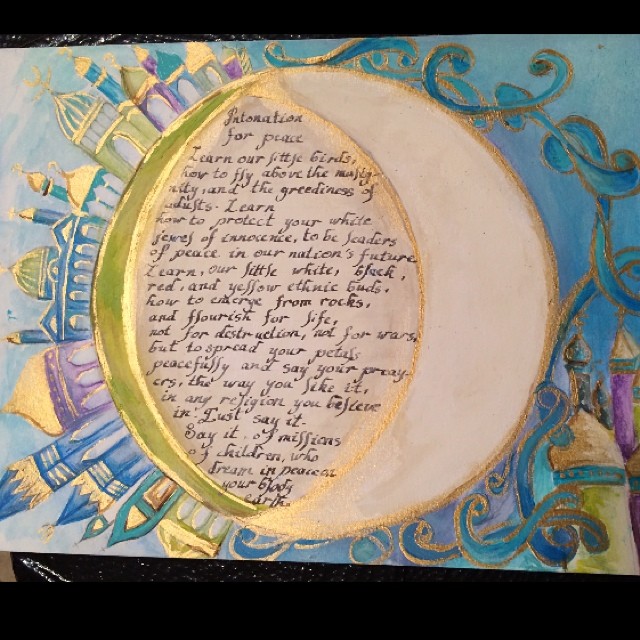 Intonation
for peace
Learn our little birds,
how to fly above the malig-
nity, and the greediness of
adults. Learn
how to protect your white
jewel of innocence, to be leaders
of peace in our nation's future
Learn, our little white, black,
red, and yellow ethnic buds,
how to emerge from rocks,
and flourish for life,
not for distruction, not for wars,
but to spread your petals
peacefully and say your pray-
ers, the way you like it,
in any religion you believe
in. Just say it.
Say it. of missions
of children, who
dream in peace on
your bloody
earth.